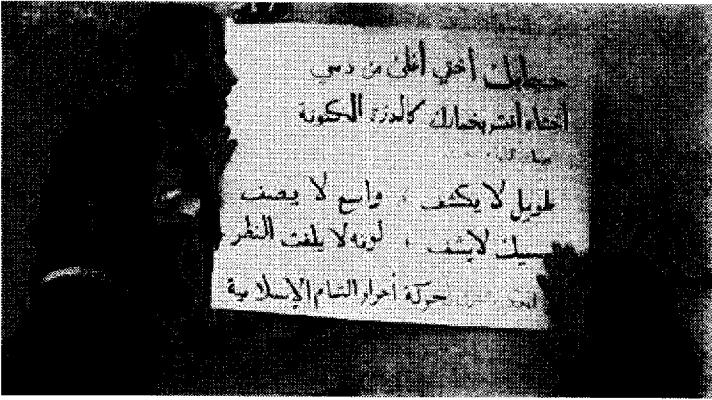 حجابك أختي أغلى من دمي
أختاه أنت بخمارك كالدرة المكنونة
طويل لا يكشف ، واسع لا يصف
سميك لا يشف ، لونه لا يلفت النظر
حركة أحرار الشام الإسلامية